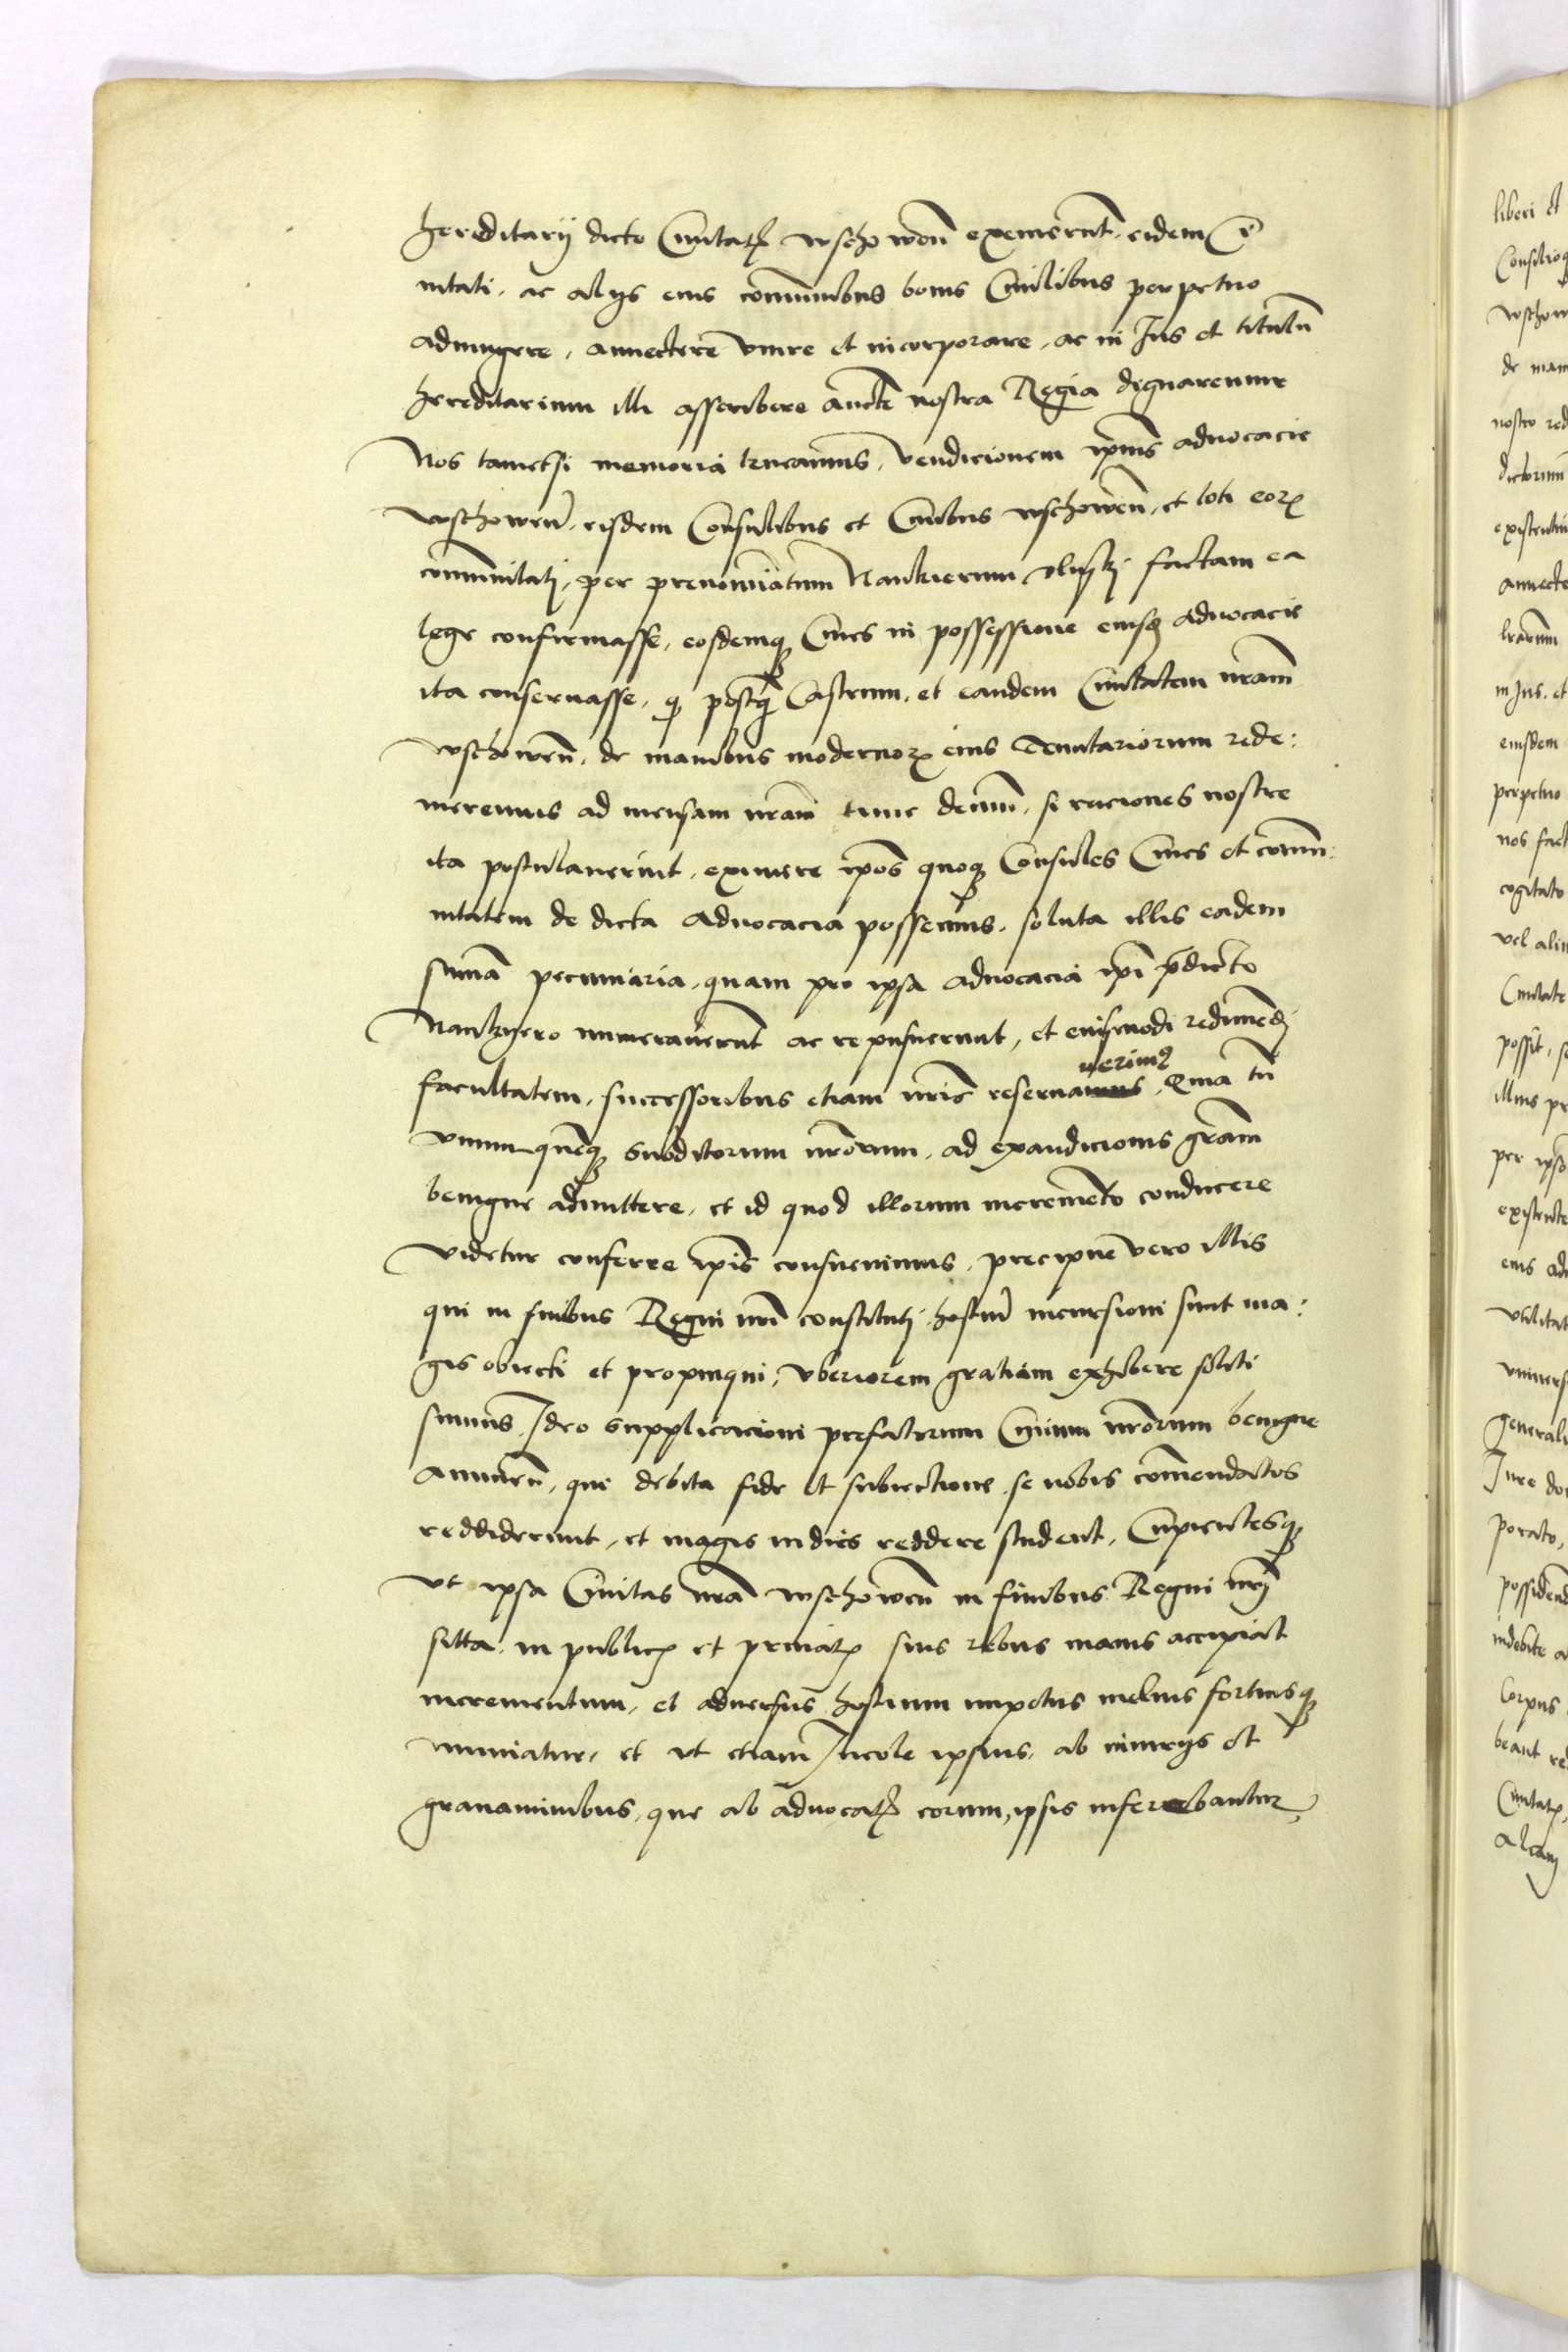 hereditarij dicte Civitatis wschowen̄ exemerūt, eidem Ci
vitati, ac alijs eius com̄unibus bonis Civilibus perpetuo
adiungere, annectere vnire et incorporare, ac in Ius et titulū
hereditarium illi asscribere auc̄te nostra Regia dignaremur
Nos tametsi memoria teneamus, vendicionem ip̄ius advocacie
wschowen̄, eisdem Consulibus et Civibus wschowen̄, et toti eoꝝ
com̄unitati, per prenominatum Nankierum vlyski factam ea
lege confirmasse, eosdemqꝫ Cives in possessione eiusdē advocacie
ita conservasse, qꝫ postq̄ Castrum, et eandem Civitatem nr̄am
wschowen̄, de manibus modernoꝝ eius Tenutariorum rede:
meremus ad mensam nr̄am tunc demū, si raciones nostre
ita postulaverint, eximere ip̄os quoqꝫ Consules Cives et com̄u:
nitatem de dicta advocacia possemus, soluta illis eadem
sum̄a pecuniaria, quam pro ipsa advocacia ip̄i p̄dicto
Nankyero numeraverūt ac reposuerunt, et eiusmodi redimēdi
facultatem, successoribus etiam nr̄is reservamus verimꝰ, Quia tn̄
vnumquēqꝫ subditorum nr̄orum, ad exaudicionis gr̄am
benigne admittere, et id quod illorum incremēto conducere
videtur conferre ip̄is consuevimus, precipue vero illis
qui in finibus Regni nr̄i constituti hostiū incursioni sunt ma:
gis obiecti et propinqui, vberiorem gratiam exhibere soliti
sumus, Ideo supplicacioni prefatorum Civium nr̄orum benigne
annuen̄, qui debita fide et subiectione se nobis com̄endatos
reddiderunt, et magis indies reddere student, Cupientesqꝫ
vt ipsa Civitas nr̄a wschowen̄ in finibus Regni nr̄j
sitta, in publicis et privatis suis rebus maius accipiat
incrementum, et adversus hostium impetus melius fortiusqꝫ
muniatur, et vt etiam Incole ipsius, ab iniurijs et
gravaminibus, que ab advocatis eorum, ipsis inferebantur,
liberi et
Consilioq
wschow
de man
nostro red
dictorum
existentiu
annecte
lr̄arum
in Ius, et
eiusdem
perpetuo
nos fact
cogitato
vel aliu
Civitate
possit, s
illius pr
per ipso
existente
eius adv
vtilitat
vnivers
general
Iure do
porato,
possidend
indebite a
Corpus
beant re
Civitatis,